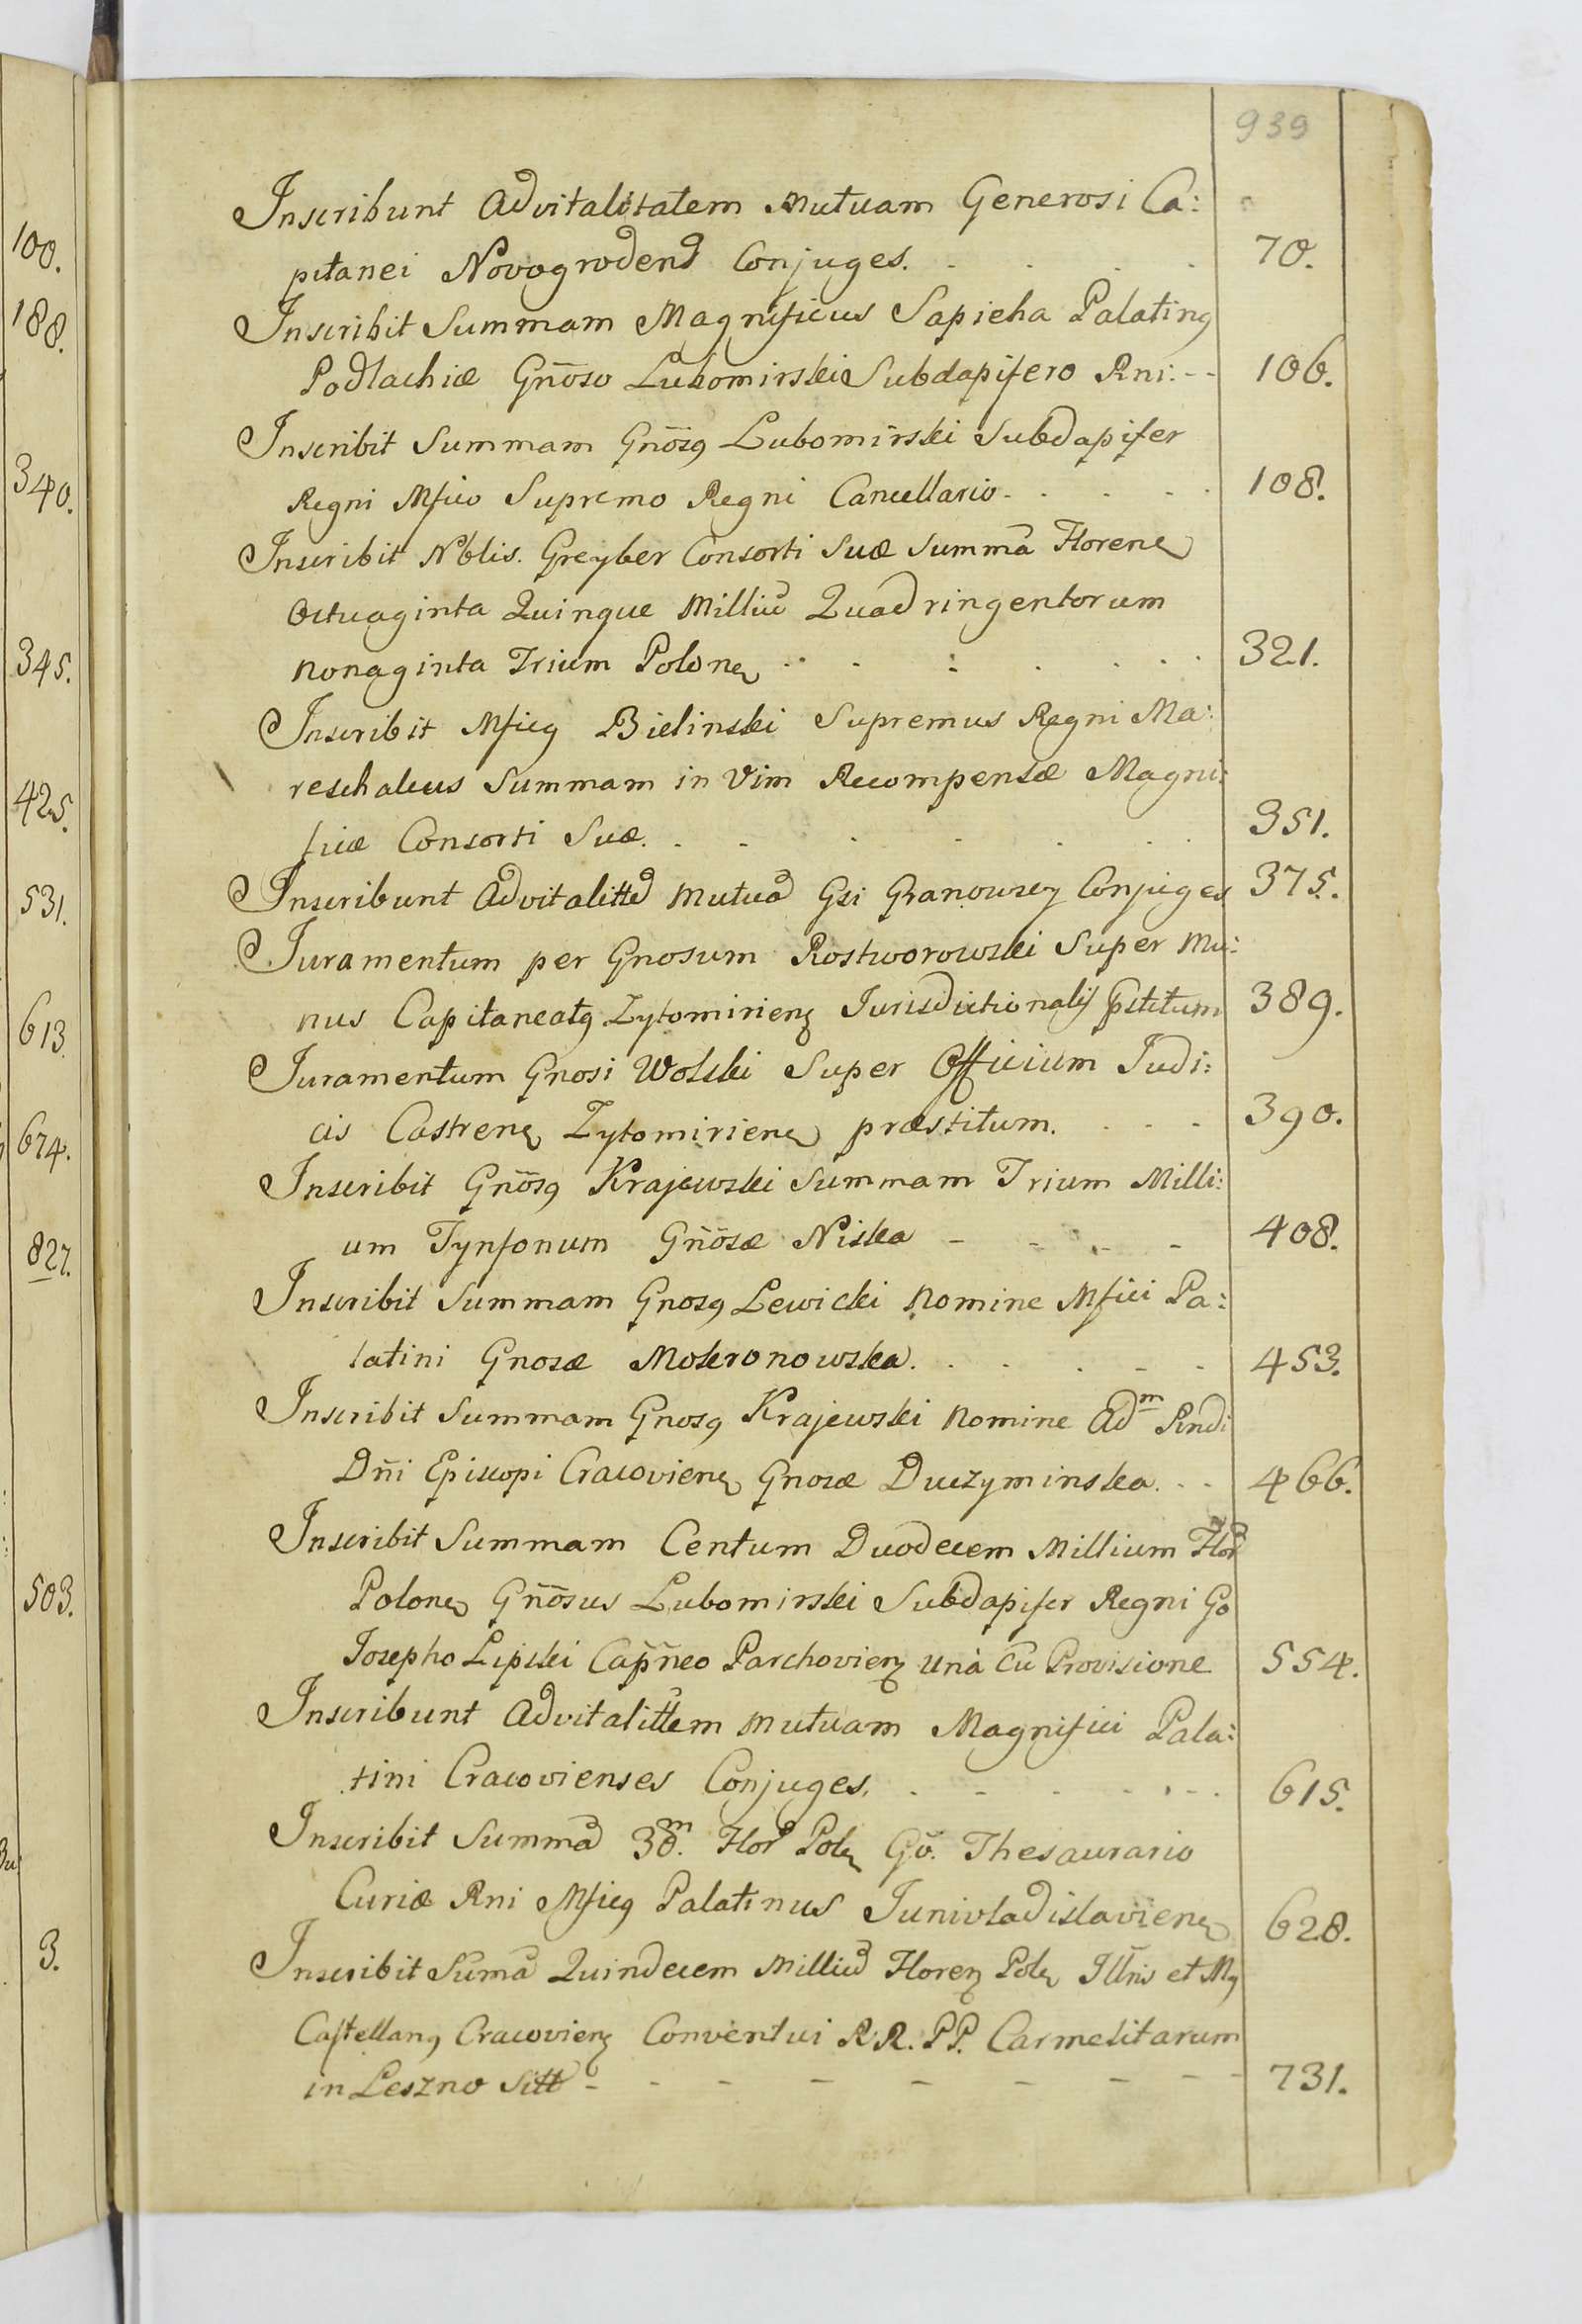 939
Inscribunt Advitalitatem Mutuam Generosi Ca:
pitanei Novogrodens Conjuges. 70.
Inscribit Summam Magnificus Sapieha Palating
Podlachiæ Gñoso Lubomirski Subdapifero Rni. 106.
Inscribit Summam Gñösg Lubomirski Subdapifer
Regni Mfico Supremo Regni Cancellario 108.
Inscribit Nblis. Greyber Consorti Suæ Summã Floren
Octuaginta Quinque Milliũ Quadringentorum
nonaginta Trium Polon 321.
Inscribit Mficg Bielinski Supremus Regni Ma:
reschalcus Summam in Vim Recompensæ Magni:
ficæ Consorti Suæ. 351.
Inscribunt Advitalitt Mutua Gsi Granowscy Conjuges 375.
Juramentum per Gnosum Rostworowski Super Mu:
nus Capitaneatg Zytomirien Jurisdictionalis Pstitum 389.
Juramentum Gnosi Wolski Super Officium Judi:
cis Castren Zytomirien præstitum. 390.
Inscribit Gñösg Krajewski Summam Trium Milli:
um Tynfonum Gñösæ Niska 408.
Inscribit Summam Gnosg Lewicki Nomine Mfici Pa:
latini Gnosæ Mokronowska. 453.
Inscribit Summam Gnosg Krajewski Nomine Adm Rndi
Dñi Episcopi Cracovien Gnosæ Duczyminska. 466.
Inscribit Summam Centum Duodecem Millium Flor
Polon Gñösus Lubomirski Subdapifer Regni Go
Josepho Lipski Capñeo Parchovien unà cũ Provisione 554.
Inscribunt Advitalittem mutuam Magnifici Pala:
tini Cracovienses Conjuges. 615.
Inscribit Summã 30.m Flor Pol Go. Thesaurario
Curiæ Rni Mficg Palatinus Junivladislavien 628.
Inscribit Sumã Quindecem Milliũ Floren Pol Illris et Mg
Castellang Cracovien Conventui R.R. P.P. Carmelitarum
in Leszno Sitt 731.
100.
188.
340.
345.
425.
531.
613.
674.
827.
503.
3.